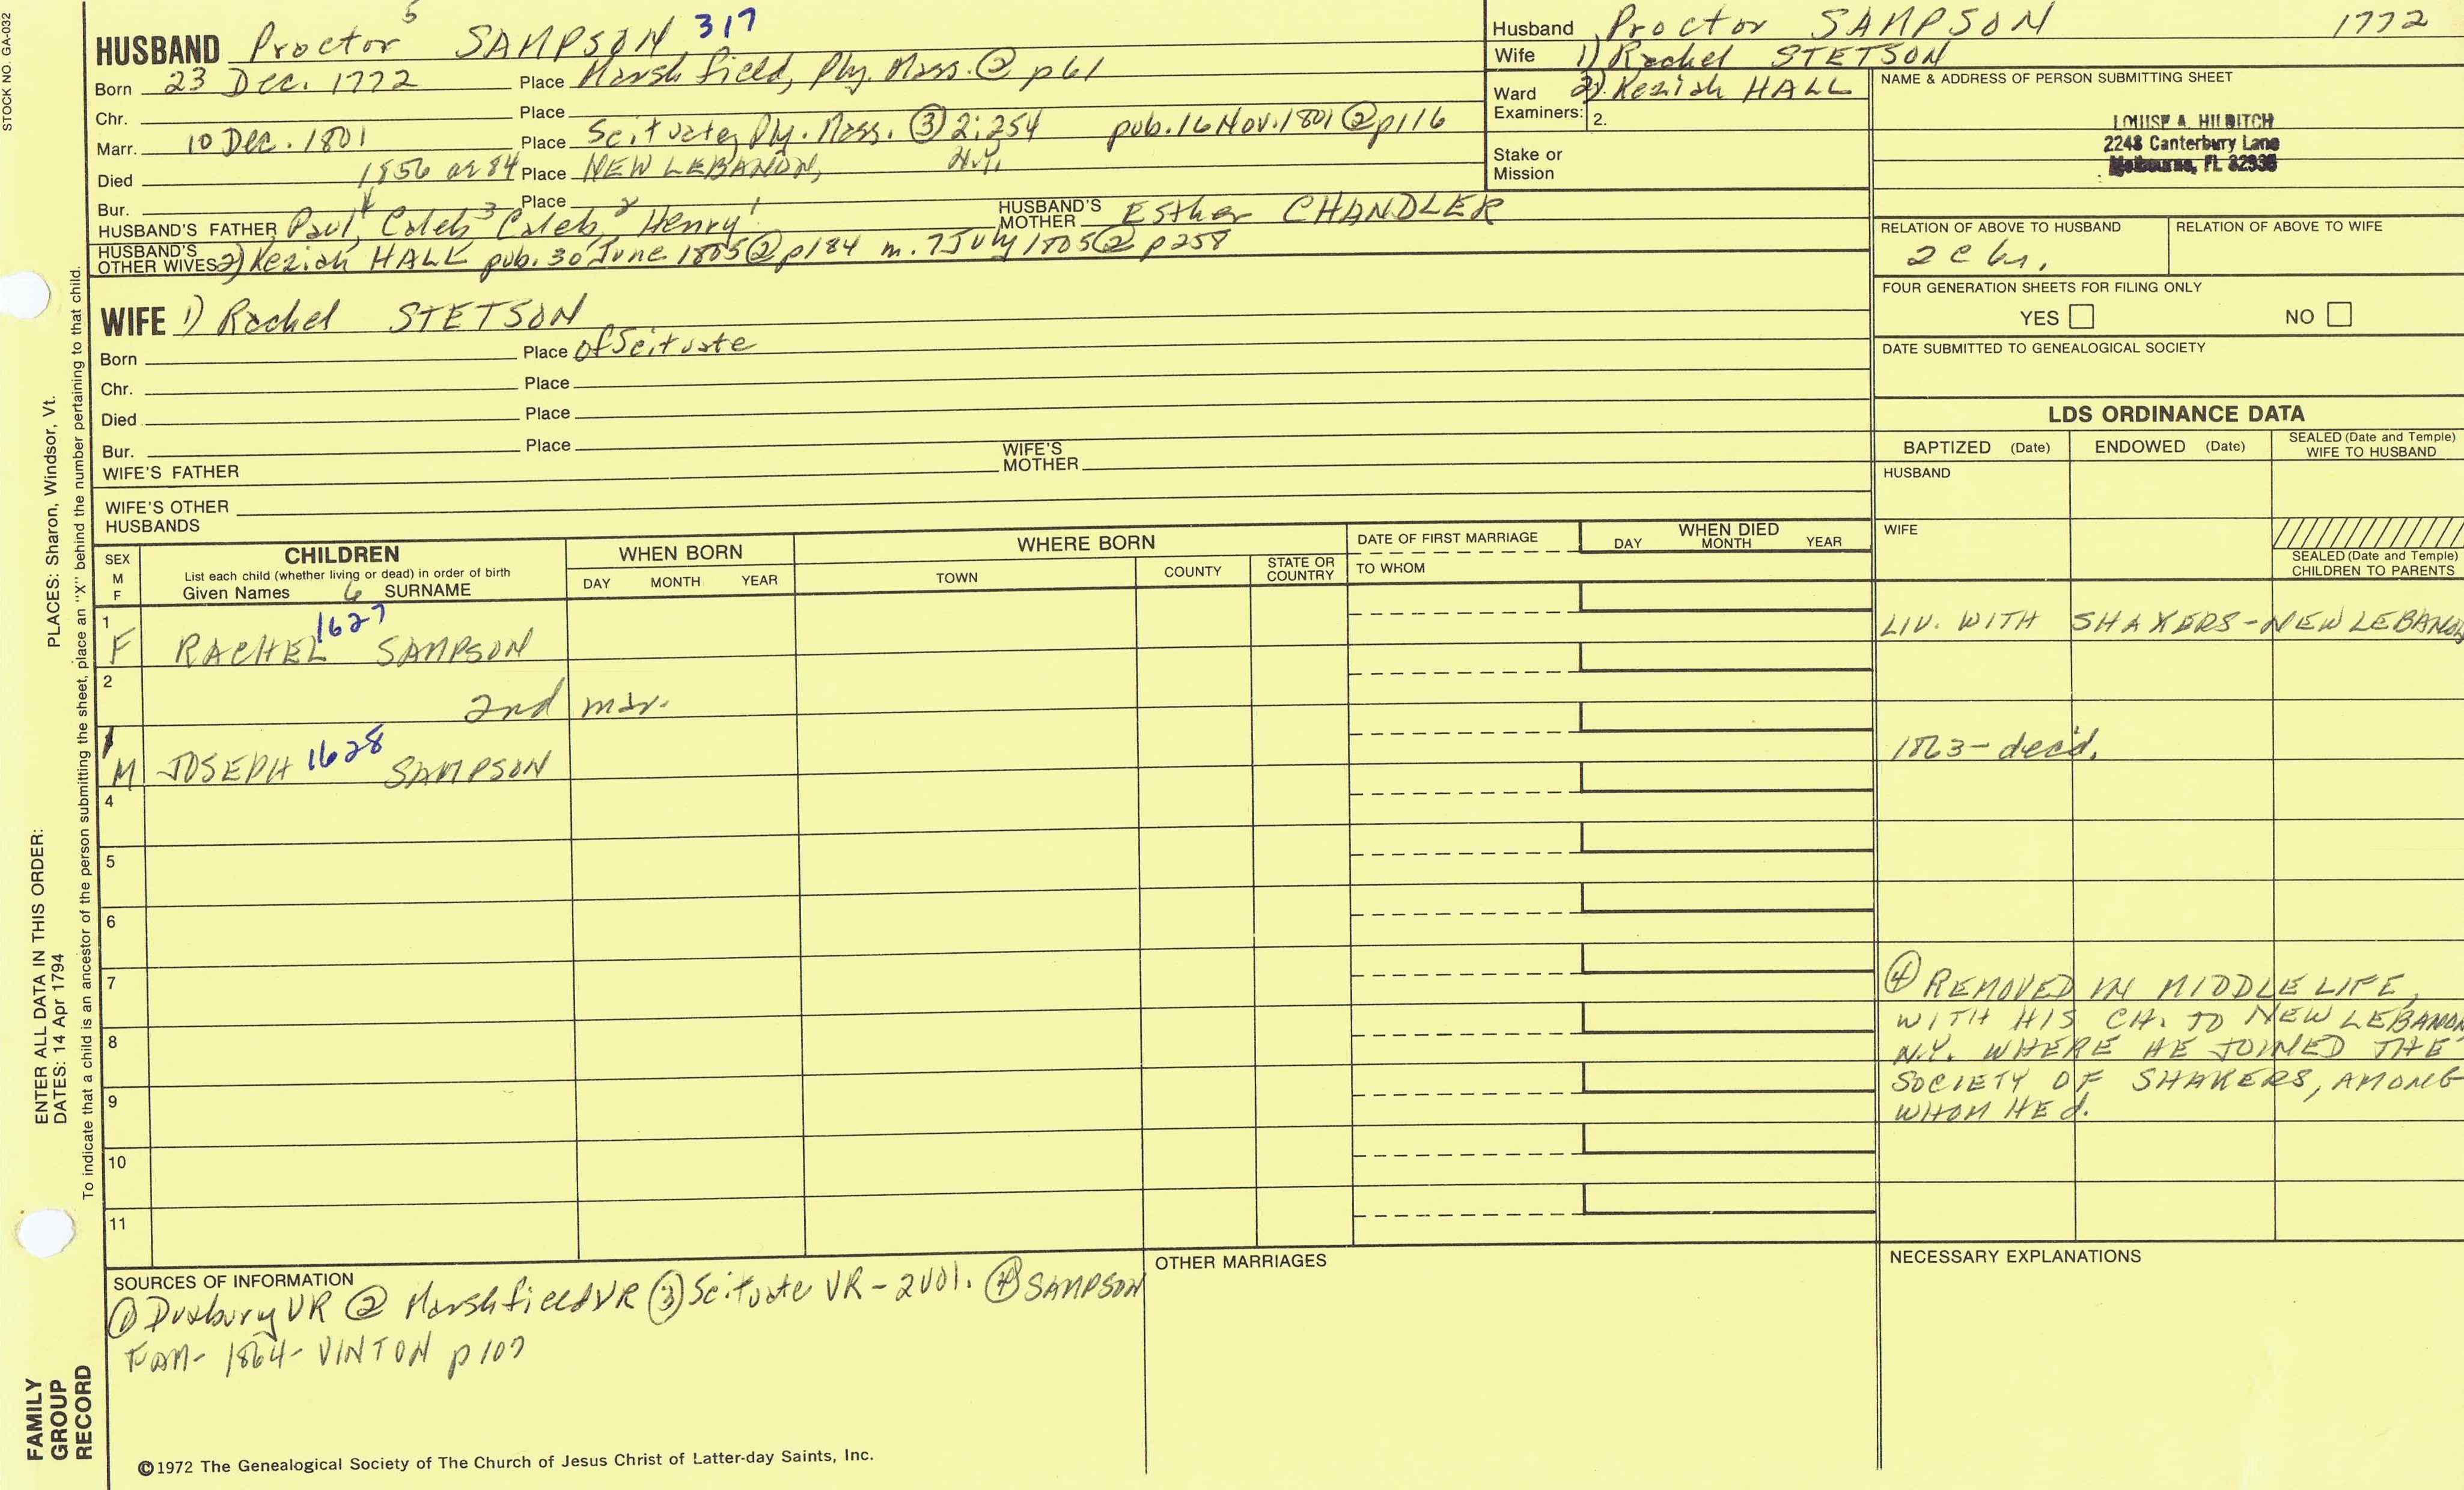 STOCK NO. GA-032
HUSBAND Proctor 5 SAMPSON 317
Born 23 Dec. 1772 Place Marshfield, Ply. Mass. ② p61
Chr. Place
Marr. 10 Dec. 1801 Place Scituate, Ply. Mass. ③ 2:254 pub. 16 Nov. 1801 ② p116
Died 1856 or 84 Place NEW LEBANON, N.Y.
Bur. Place
HUSBAND'S FATHER Paul 4 Caleb 3 Caleb 2 Henry 1 HUSBAND'S MOTHER Esther CHANDLER
HUSBAND'S OTHER WIVES 2) Keziah HALL pub. 30 June 1805 ② p184 m. 7 July 1805 ② p258
WIFE 1) Rachel STETSON
Born Place of Scituate
Chr. Place
Died Place
Bur. Place
WIFE'S FATHER WIFE'S MOTHER
WIFE'S OTHER HUSBANDS
Husband Proctor SAMPSON 1772
Wife 1) Rachel STETSON
Ward 2) Keziah HALL
Examiners: 2.
Stake or Mission
NAME & ADDRESS OF PERSON SUBMITTING SHEET
LOUISE A. HILDITCH
2248 Canterbury Lane
Melbourne, FL 32935
RELATION OF ABOVE TO HUSBAND RELATION OF ABOVE TO WIFE
FOUR GENERATION SHEETS FOR FILING ONLY
YES NO
DATE SUBMITTED TO GENEALOGICAL SOCIETY
LDS ORDINANCE DATA
BAPTIZED (Date) ENDOWED (Date) SEALED (Date and Temple) WIFE TO HUSBAND
HUSBAND
WIFE
SEALED (Date and Temple) CHILDREN TO PARENTS
SEX M F
CHILDREN
List each child (whether living or dead) in order of birth
Given Names 6 SURNAME
WHEN BORN
DAY MONTH YEAR
WHERE BORN
TOWN COUNTY STATE OR COUNTRY
DATE OF FIRST MARRIAGE
TO WHOM
WHEN DIED
DAY MONTH YEAR
1 F RACHEL 1627 SAMPSON LIV. WITH SHAKERS-NEW LEBANON
2 2nd mar.
M JOSEPH 1628 SAMPSON 1863-dec'd.
4
5
6
7
8
9
10
11
④ REMOVED IN MIDDLE LIFE,
WITH HIS CH. TO NEW LEBANON
N.Y. WHERE HE JOINED THE
SOCIETY OF SHAKERS, AMONG
WHOM HE d.
SOURCES OF INFORMATION
① Duxbury VR ② Marshfield VR ③ Scituate VR-2 Vol. ④ SAMPSON
FAM- 1864- VINTON p107
OTHER MARRIAGES
NECESSARY EXPLANATIONS
©1972 The Genealogical Society of The Church of Jesus Christ of Latter-day Saints, Inc.
FAMILY GROUP RECORD
ENTER ALL DATA IN THIS ORDER:
DATES: 14 Apr 1794
PLACES: Sharon, Windsor, Vt.
To indicate that a child is an ancestor of the person submitting the sheet, place an "X" behind the number pertaining to that child.